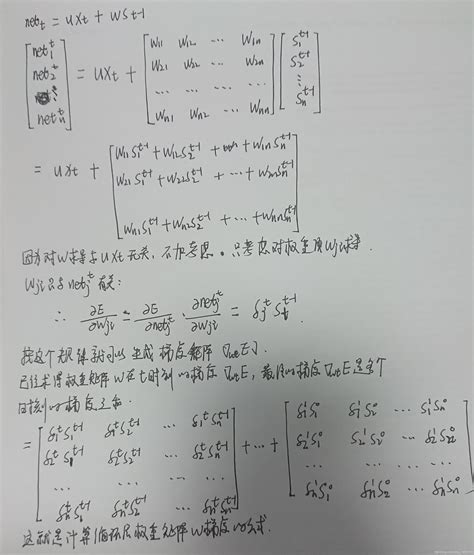 net_t = UX_t + WS_{t-1}
[net_1^t net_2^t ⋮ net_n^t] = UX_t + [W_11 W_12 … W_1n; W_21 W_22 … W_2n; … … … …; W_n1 W_n2 … W_nn] [S_1^{t-1} S_2^{t-1} ⋮ S_n^{t-1}]
= UX_t + [W_11 S_1^{t-1} + W_12 S_2^{t-1} + … + W_1n S_n^{t-1}; W_21 S_1^{t-1} + W_22 S_2^{t-1} + … + W_2n S_n^{t-1}; W_n1 S_1^{t-1} + W_n2 S_2^{t-1} + … + W_nn S_n^{t-1}]
因为对W求导与UX_t无关,不加考虑。只考虑对权重项W_ji求导
W_ji只与net_j^t有关:
∴ ∂E/∂W_ji = ∂E/∂net_j^t · ∂net_j^t/∂W_ji = δ_j^t S_i^{t-1}
按这个规律就可以生成梯度矩阵 ∇_wt E.
已经求得权重矩阵W在t时刻的梯度∇_wt E, 最终的梯度∇_w E是各个
时刻的梯度之和
= [δ_1^t S_1^{t-1} δ_1^t S_2^{t-1} … δ_1^t S_n^{t-1}; δ_2^t S_1^{t-1} δ_2^t S_2^{t-1} … δ_2^t S_n^{t-1}; … … … …; δ_n^t S_1^{t-1} δ_n^t S_2^{t-1} … δ_n^t S_n^{t-1}] + … + [δ_1^1 S_1^0 δ_1^1 S_2^0 … δ_1^1 S_n^0; δ_2^1 S_1^0 δ_2^1 S_2^0 … δ_2^1 S_n^0; … … … …; δ_n^1 S_1^0 δ_n^1 S_2^0 … δ_n^1 S_n^0]
这就是计算循环层权重矩阵W梯度的公式.